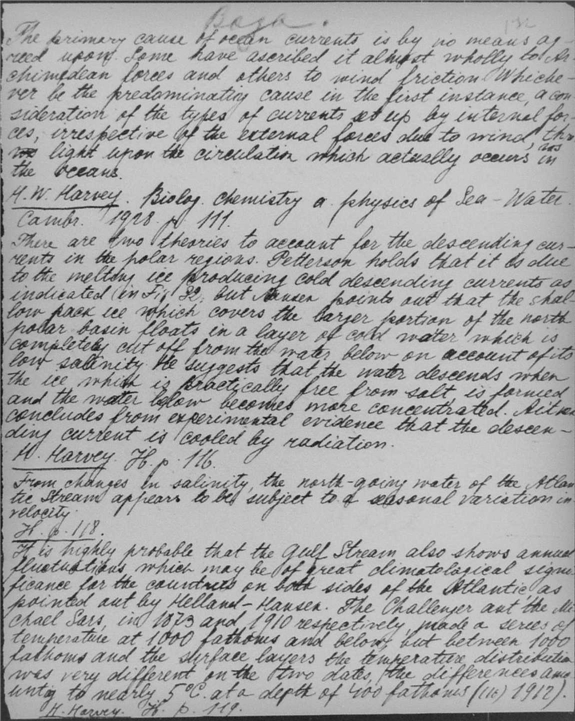 The primary cause of ocean currents is by no means ag-
reed upon. Some have ascribed it almost wholly to Ar-
chimedean forces and others to wind friction. Whiche-
ver be the predominating cause in the first instance, a con
sideration of the types of currents set up by internal for-
ces, irrespective of the external forces due to wind, thro
ws light upon the circulation which actually occurs in
the oceans.
H.W. Harvey. Biolog. chemistry a. physics of Sea-Water.
Cambr. 1928. p. 111.
There are two theories to account for the descending cur-
rents in the polar regions. Petterson holds that it is due
to the melting ice producing cold descending currents as
indicated in Fig 32, but Nansen points out that the shal
low pack ice which covers the larger portion of the north
polar basin floats in a layer of cold water which is
completely cut off from the water below on account of its
low salinity. He suggests that the water descends when
the ice, which is practically free from salt, is formed
and the water below becomes more concentrated.
concludes from experimental evidence that the descen-
ding current is cooled by radiation.
H. Harvey. H. p. 116.
From changes in salinity, the north-going water of the Atlan
tic Stream appears to be subject to a seasonal variation in
velocity.
H. p. 118.
It is highly probable that the Gulf Stream also shows annual
fluctuations which may be of great climatological signi
ficance for the countries on both sides of the Atlantic as
pointed out by Helland-Hansen. The Challenger ant the Mi
chael Sars, in 1873 and 1910 respectively made a series of
temperature at 1000 fathoms and below, but between 1000
fathoms and the surface layers the temperature distribution
was very different on the two dates, the differences amo
unting to nearly 5°C. at a depth of 400 fathoms (116) 1912).
H. Harvey. H. p. 119.